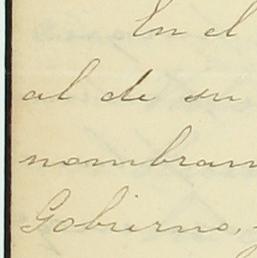 En el
al de su
nombram
Gobierno,